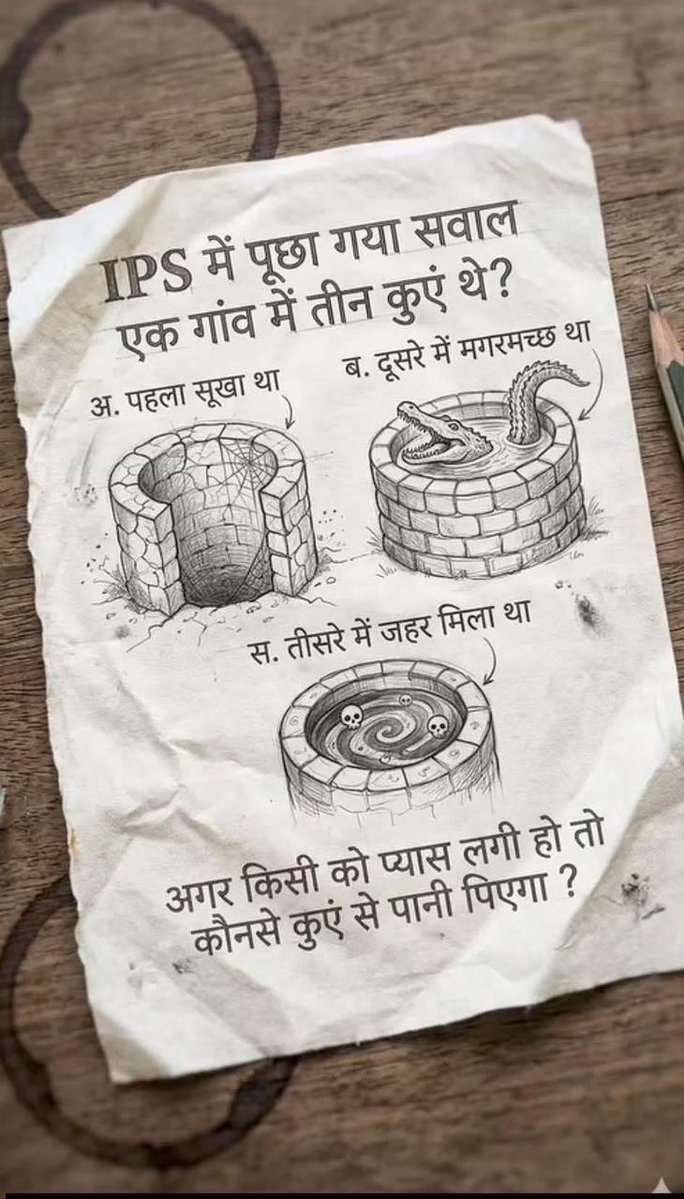 IPS में पूछा गया सवाल
एक गांव में तीन कुएं थे?
अ. पहला सूखा था
ब. दूसरे में मगरमच्छ था
स. तीसरे में जहर मिला था
अगर किसी को प्यास लगी हो तो
कौनसे कुएं से पानी पिएगा ?